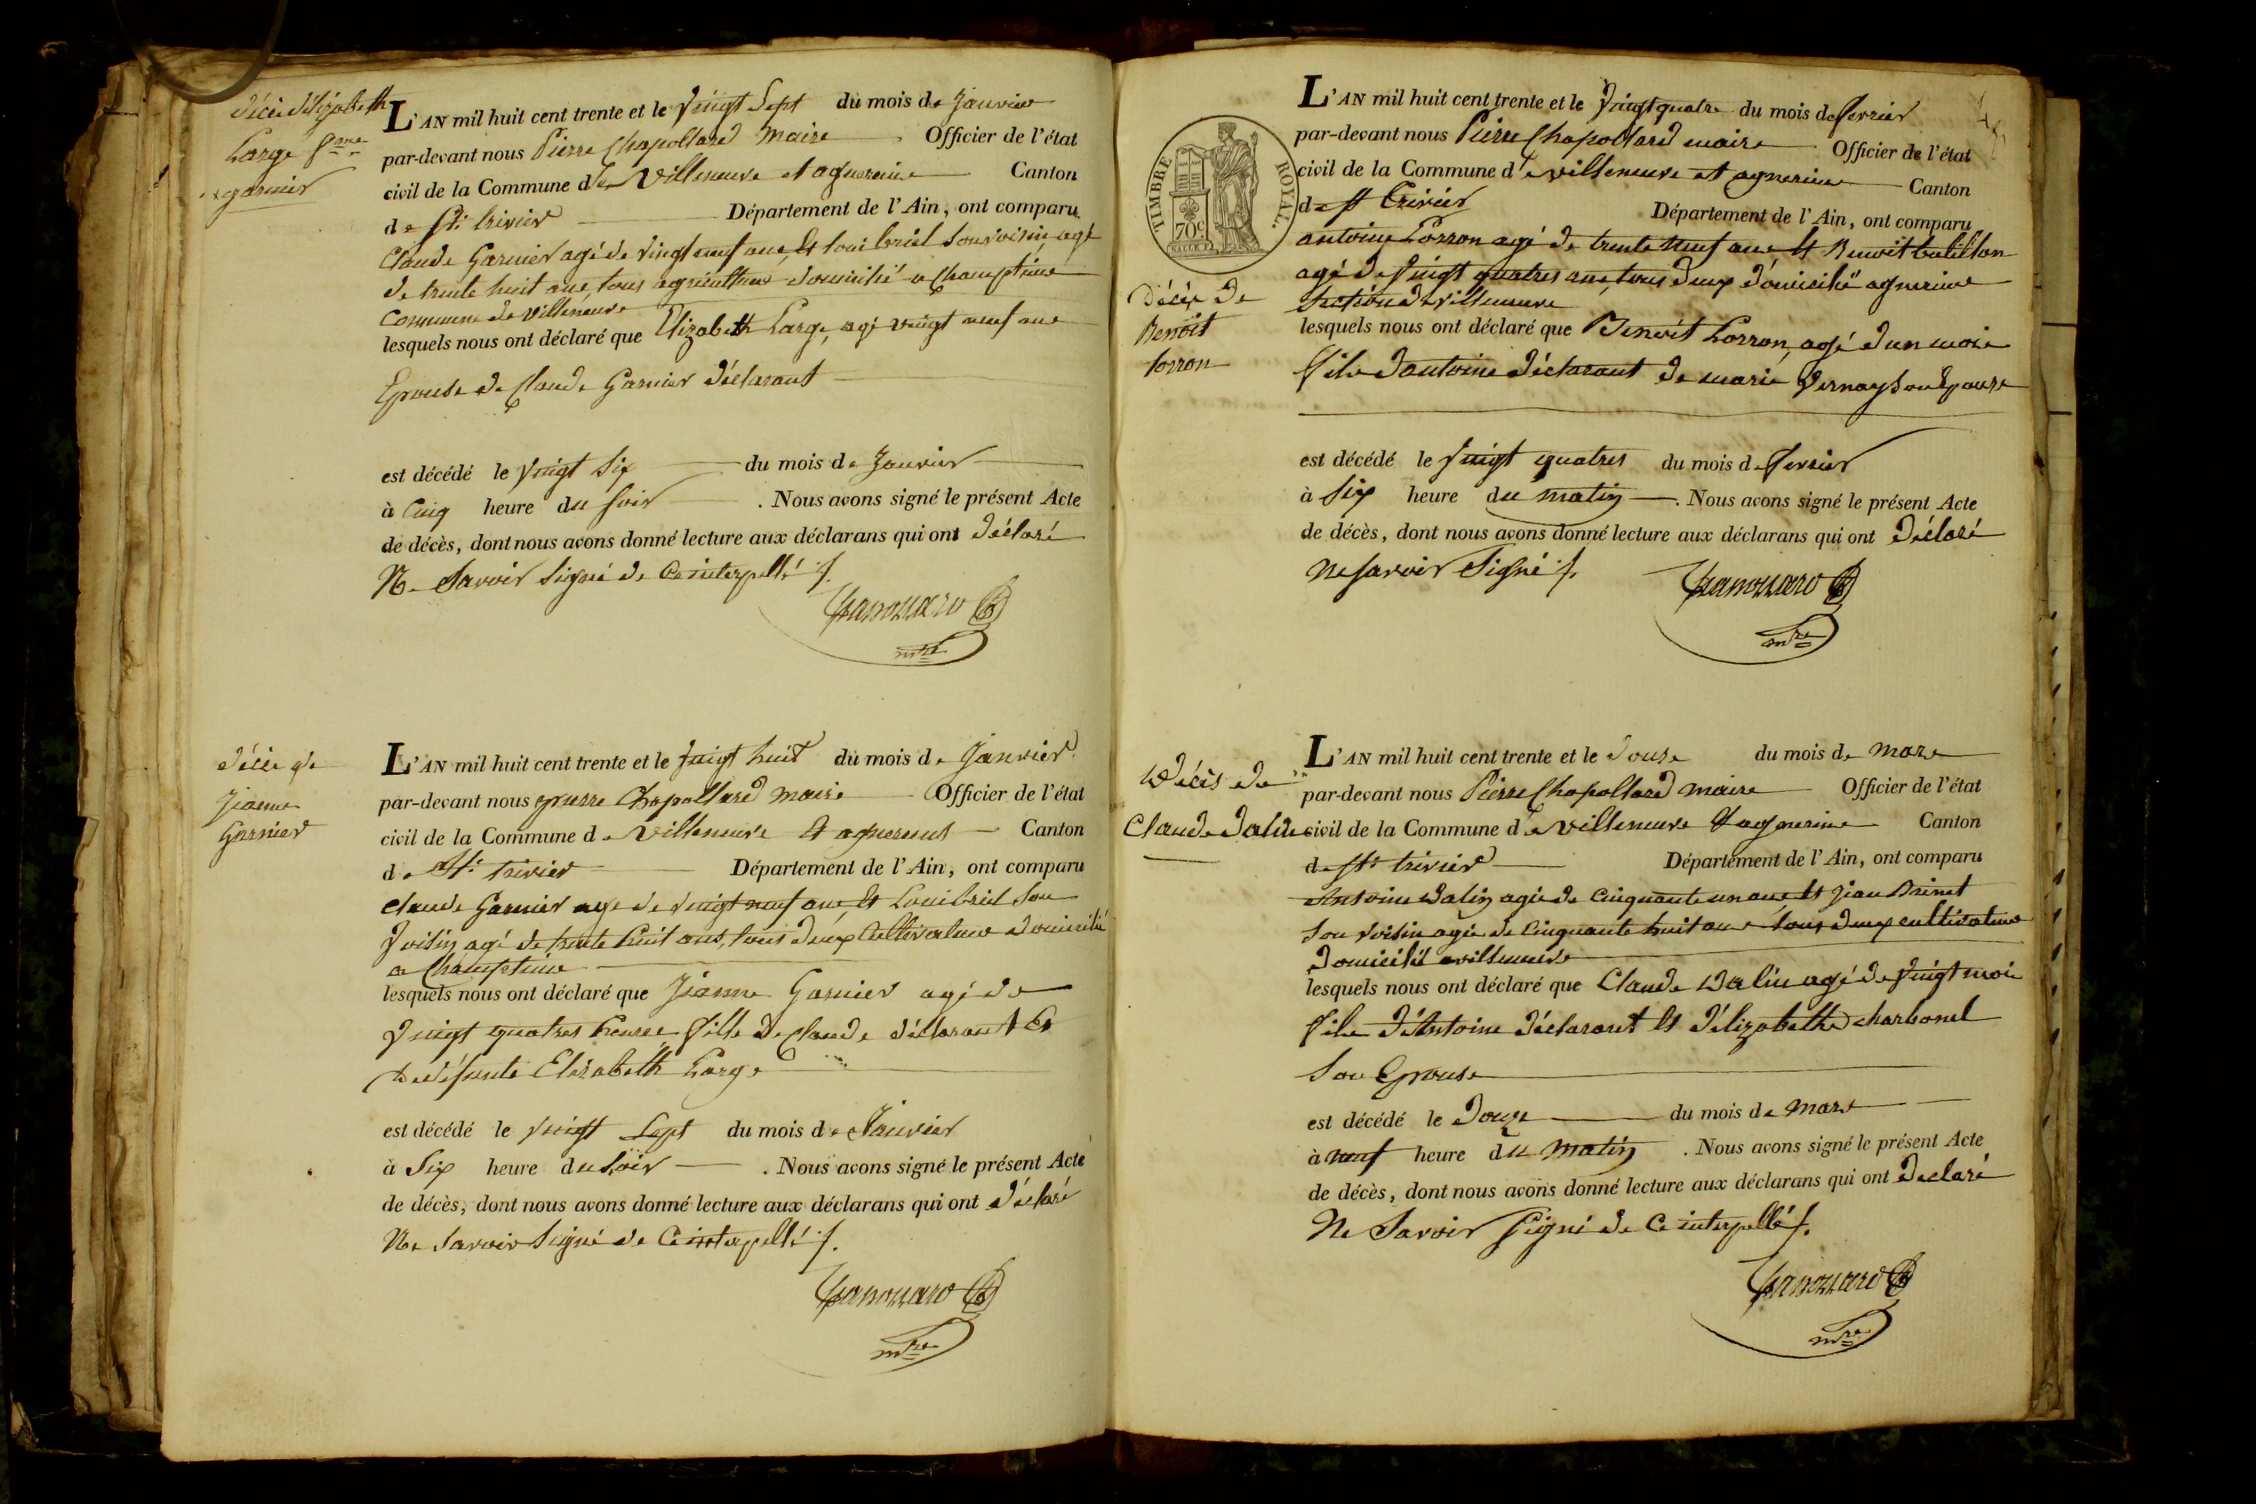 décès d'Elizabeth
Large f.me
garnier
L'AN mil huit cent trente et le vingt Sept du mois de Janvier
par-devant nous Pierre Chapollard maire Officier de l'état
civil de la Commune de villeneuve et agnereine Canton
de St. trivier Département de l'Ain, ont comparu
Claude Garnier agé de vingt neuf ans, et Loui briel Son voisin, agé
de trente huit ans, tous agriculteur domicilié a Champtime
Commune de villeneuve
lesquels nous ont déclaré que Elizabeth Large, agé vingt neuf ans
Epouse de Claude Garnier déclarant
est décédé le vingt Six du mois de Janvier
à Cinq heure du Soir . Nous avons signé le présent Acte
de décès, dont nous avons donné lecture aux déclarans qui ont déclaré
Ne Savoir Signé de Ce interpellé ./.
mre
décès de
Jeanne
Garnier
L'AN mil huit cent trente et le vingt huit du mois de Janvier
par-devant nous pierre Chapollard maire Officier de l'état
civil de la Commune de villeneuve et Canton
de St. trivier Département de l'Ain, ont comparu
Claude Garnier age de vingt neuf ans, et Loui briel Son
voisin agé de trente huit ans, tous deux Cultivateur domicilié
a Champtime
lesquels nous ont déclaré que Jeanne Garnier agé de
vingt quatres heures fille de Claude déclarant Et
de défunte Elizabeth Large
est décédé le vingt Sept du mois de Janvier
à Six heure du Soir . Nous avons signé le présent Acte
de décès, dont nous avons donné lecture aux déclarans qui ont déclaré
Ne Savoir Signé de Ce interpellé ./.
mre
TIMBRE ROYAL.
70c
décès de
Benoît
Lorron
L'AN mil huit cent trente et le vingt quatre du mois de fevrier
par-devant nous Pierre Chapollard maire Officier de l'état
civil de la Commune de villeneuve et agnereine Canton
de St trivier Département de l'Ain, ont comparu
antoine Lorron agé de trente neuf ans, et Benoit batillon
agé de vingt quatres ans, tous deux domicilié agnereine
Section de villeneuve
lesquels nous ont déclaré que Benoit Lorron, agé d'un mois
fils d'antoine déclarant de marie vernay son Epouse
est décédé le vingt quatres du mois de fevrier
à Six heure du matin . Nous avons signé le présent Acte
de décès, dont nous avons donné lecture aux déclarans qui ont déclaré
Ne savoir Signé ./.
mre
Décès de
Claude dalin
L'AN mil huit cent trente et le douze du mois de mars
par-devant nous Pierre Chapollard maire Officier de l'état
civil de la Commune de villeneuve et agnereine Canton
de St. trivier Département de l'Ain, ont comparu
Antoine dalin agé de Cinquante un ans et Jean Brinet
Son voisin agé de Cinquante huit ans tous deux cultivateur
domicilié a villeneuve
lesquels nous ont déclaré que Claude dalin agé de vingt mois
fils d'Antoine déclarant et d'élizabethe charbonel
Son Epouse
est décédé le douze du mois de mars
à neuf heure du matin . Nous avons signé le présent Acte
de décès, dont nous avons donné lecture aux déclarans qui ont declaré
Ne Savoir Signé de Ce interpellé ./.
mre